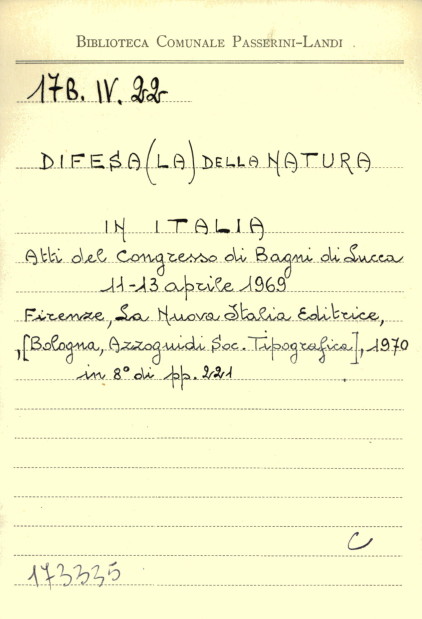 BIBLIOTECA COMUNALE PASSERINI-LANDI
17B. IV. 22
DIFESA (LA) DELLA NATURA
IN ITALIA
Atti del Congresso di Bagni di Lucca
11-13 aprile 1969
Firenze, La Nuova Italia Editrice,
,[Bologna, Azzoguidi Soc. Tipografica], 1970
in 8° di pp. 221
C
173335